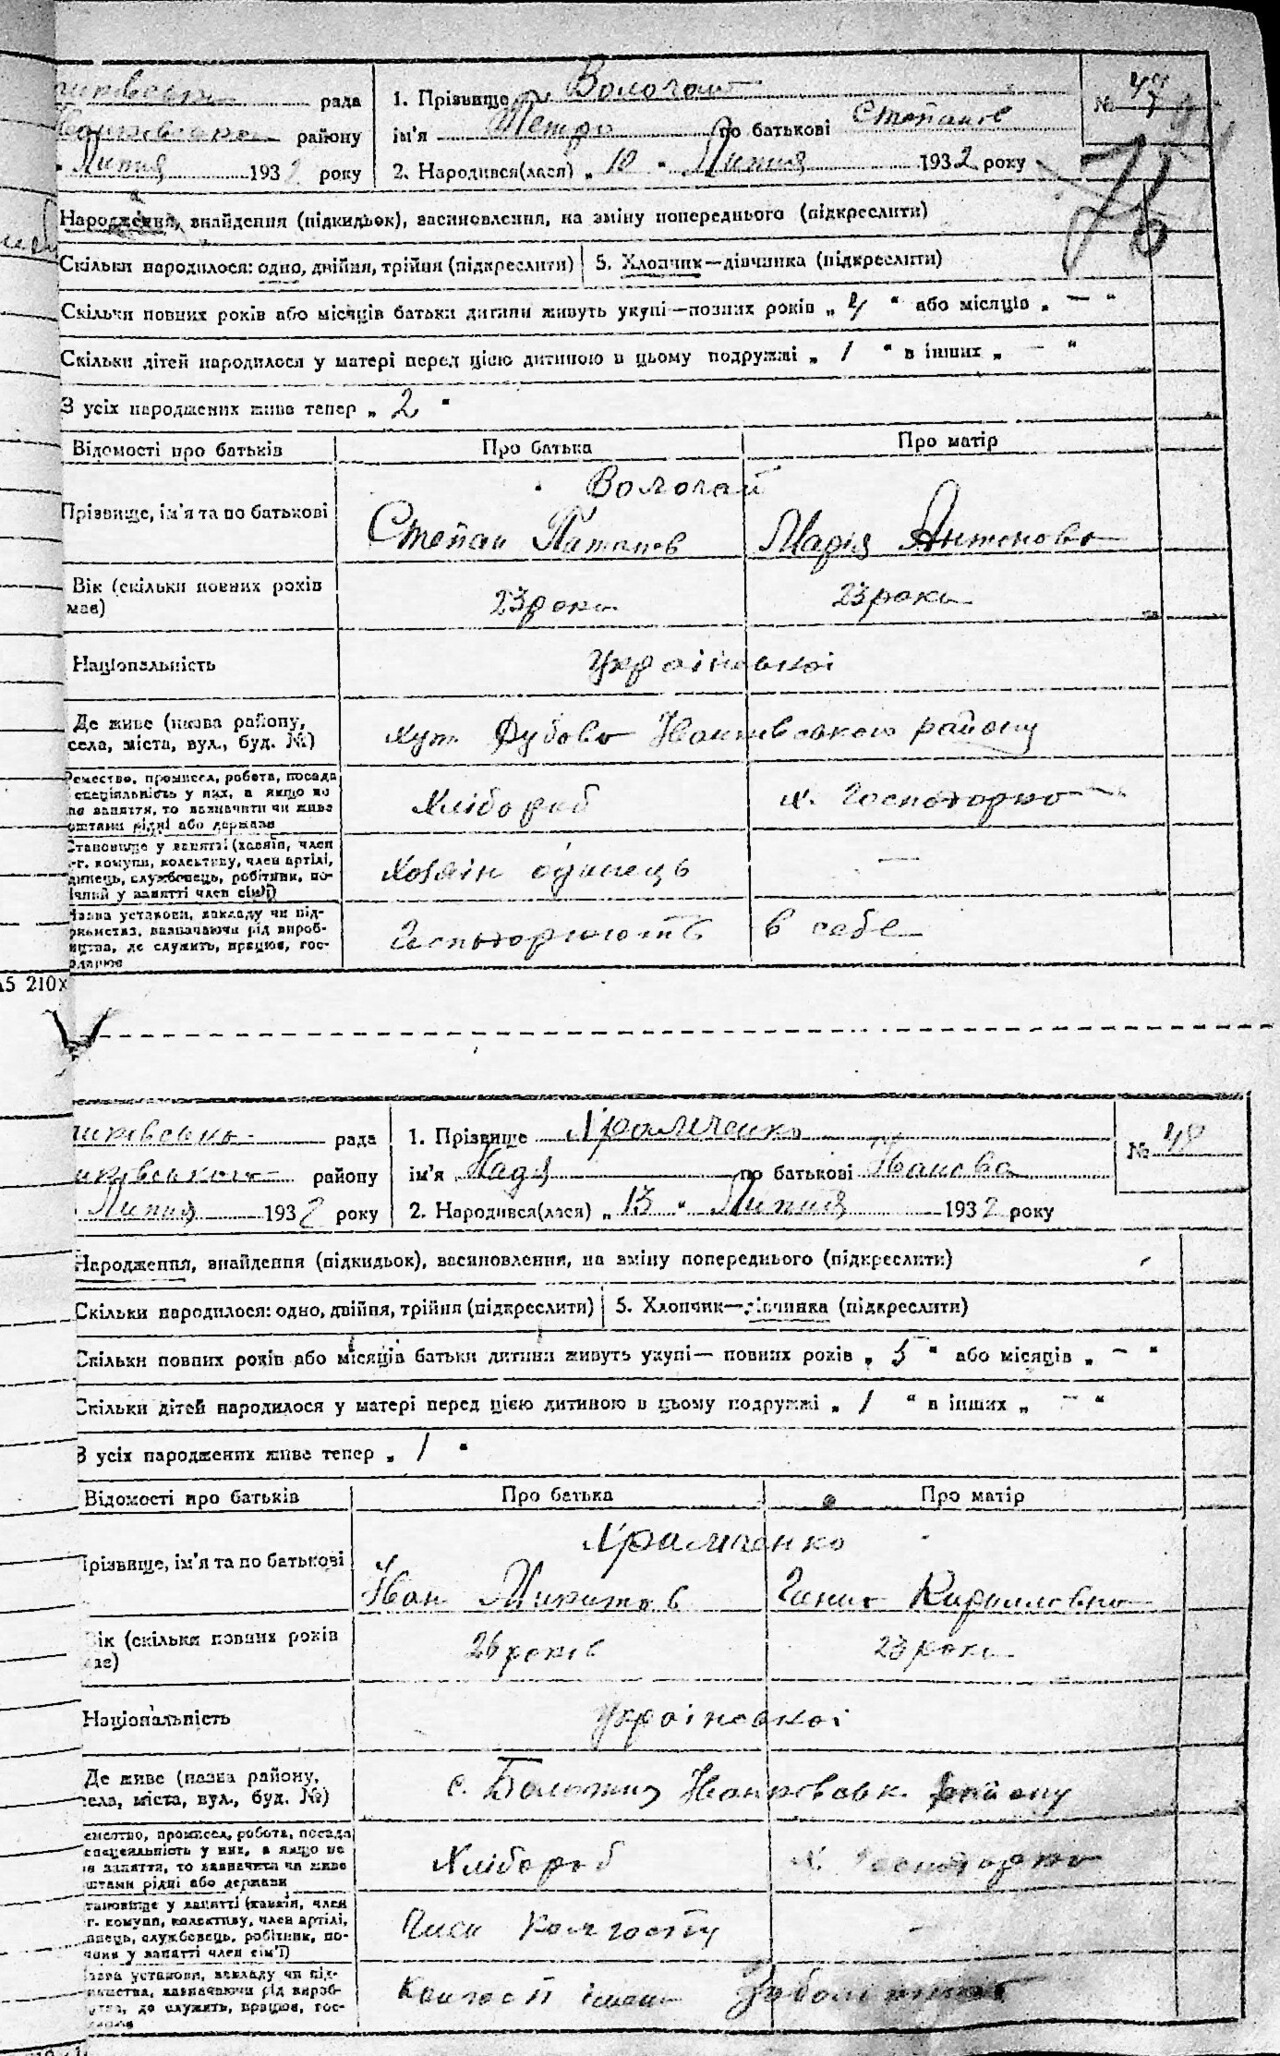 рада
1. Прізвище Вологай
№ 47
району
ім'я Петро по батькові Степанов
Липня 1932 року
2. Народився(лася) „ 10 " Липня 1932 року
76
Народження, знайдення (підкидьок), засиновлення, на зміну попереднього (підкреслити)
Скільки народилося: одно, двійня, трійня (підкреслити)
5. Хлопчик—дівчинка (підкреслити)
Скільки повних років або місяців батьки дитини живуть укупі—повних років „ 4 " або місяців „ — "
Скільки дітей народилося у матері перед цією дитиною в цьому подружжі „ 1 " в інших „ — "
З усіх народжених живе тепер „ 2 "
Відомості про батьків
Про батька
Про матір
Вологай
Прізвище, ім'я та по батькові
Степан Потапов
Марія Антонова
Вік (скільки повних років
має)
23 роки
23 роки
Національність
Української
Де живе (назва району,
села, міста, вул., буд. №)
Хут Дубово Іванківського району
Ремество, промисел, робота, посада
спеціяльність у них, а якщо не
має заняття, то зазначити чи живе
коштами рідні або держави
Хлібороб
х. Господарка
Становище у занятті (хазяїн, член
с.-г. комуни, колективу, член артілі,
одинець, службовець, робітник, по-
мічний у занятті член сім'ї)
Хозяін одинець
—
Назва установи, закладу чи під-
приємства, зазначаючи рід вироб-
ництва, де служить, працює, гос-
подарює
Господорюють в себе
А5 210х
рада
1. Прізвище Храмченко
№ 48
району
ім'я Надя по батькові Іванова
Липня 1932 року
2. Народився(лася) „ 13 " Липня 1932 року
Народження, знайдення (підкидьок), засиновлення, на зміну попереднього (підкреслити)
Скільки народилося: одно, двійня, трійня (підкреслити)
5. Хлопчик—дівчинка (підкреслити)
Скільки повних років або місяців батьки дитини живуть укупі— повних років „ 5 " або місяців „ — "
Скільки дітей народилося у матері перед цією дитиною в цьому подружжі „ 1 " в інших „ — "
З усіх народжених живе тепер „ 1 "
Відомості про батьків
Про батька
Про матір
Храмченко
Прізвище, ім'я та по батькові
Іван Микитов
Ганна Кирилловна
Вік (скільки повних років
має)
26 років
23 роки
Національність
Української
Де живе (назва району,
села, міста, вул., буд. №)
с. Болотня Іванковськ. району
Ремество, промисел, робота, посада
спеціяльність у них, а якщо не
має заняття, то зазначити чи живе
коштами рідні або держави
Хлібороб
х. Господарка
Становище у занятті (хазяїн, член
с.-г. комуни, колективу, член артілі,
одинець, службовець, робітник, по-
мічний у занятті член сім'ї)
Член колгоспу
—
Назва установи, закладу чи під-
приємства, зазначаючи рід вироб-
ництва, де служить, працює, гос-
подарює
Колгосп імени